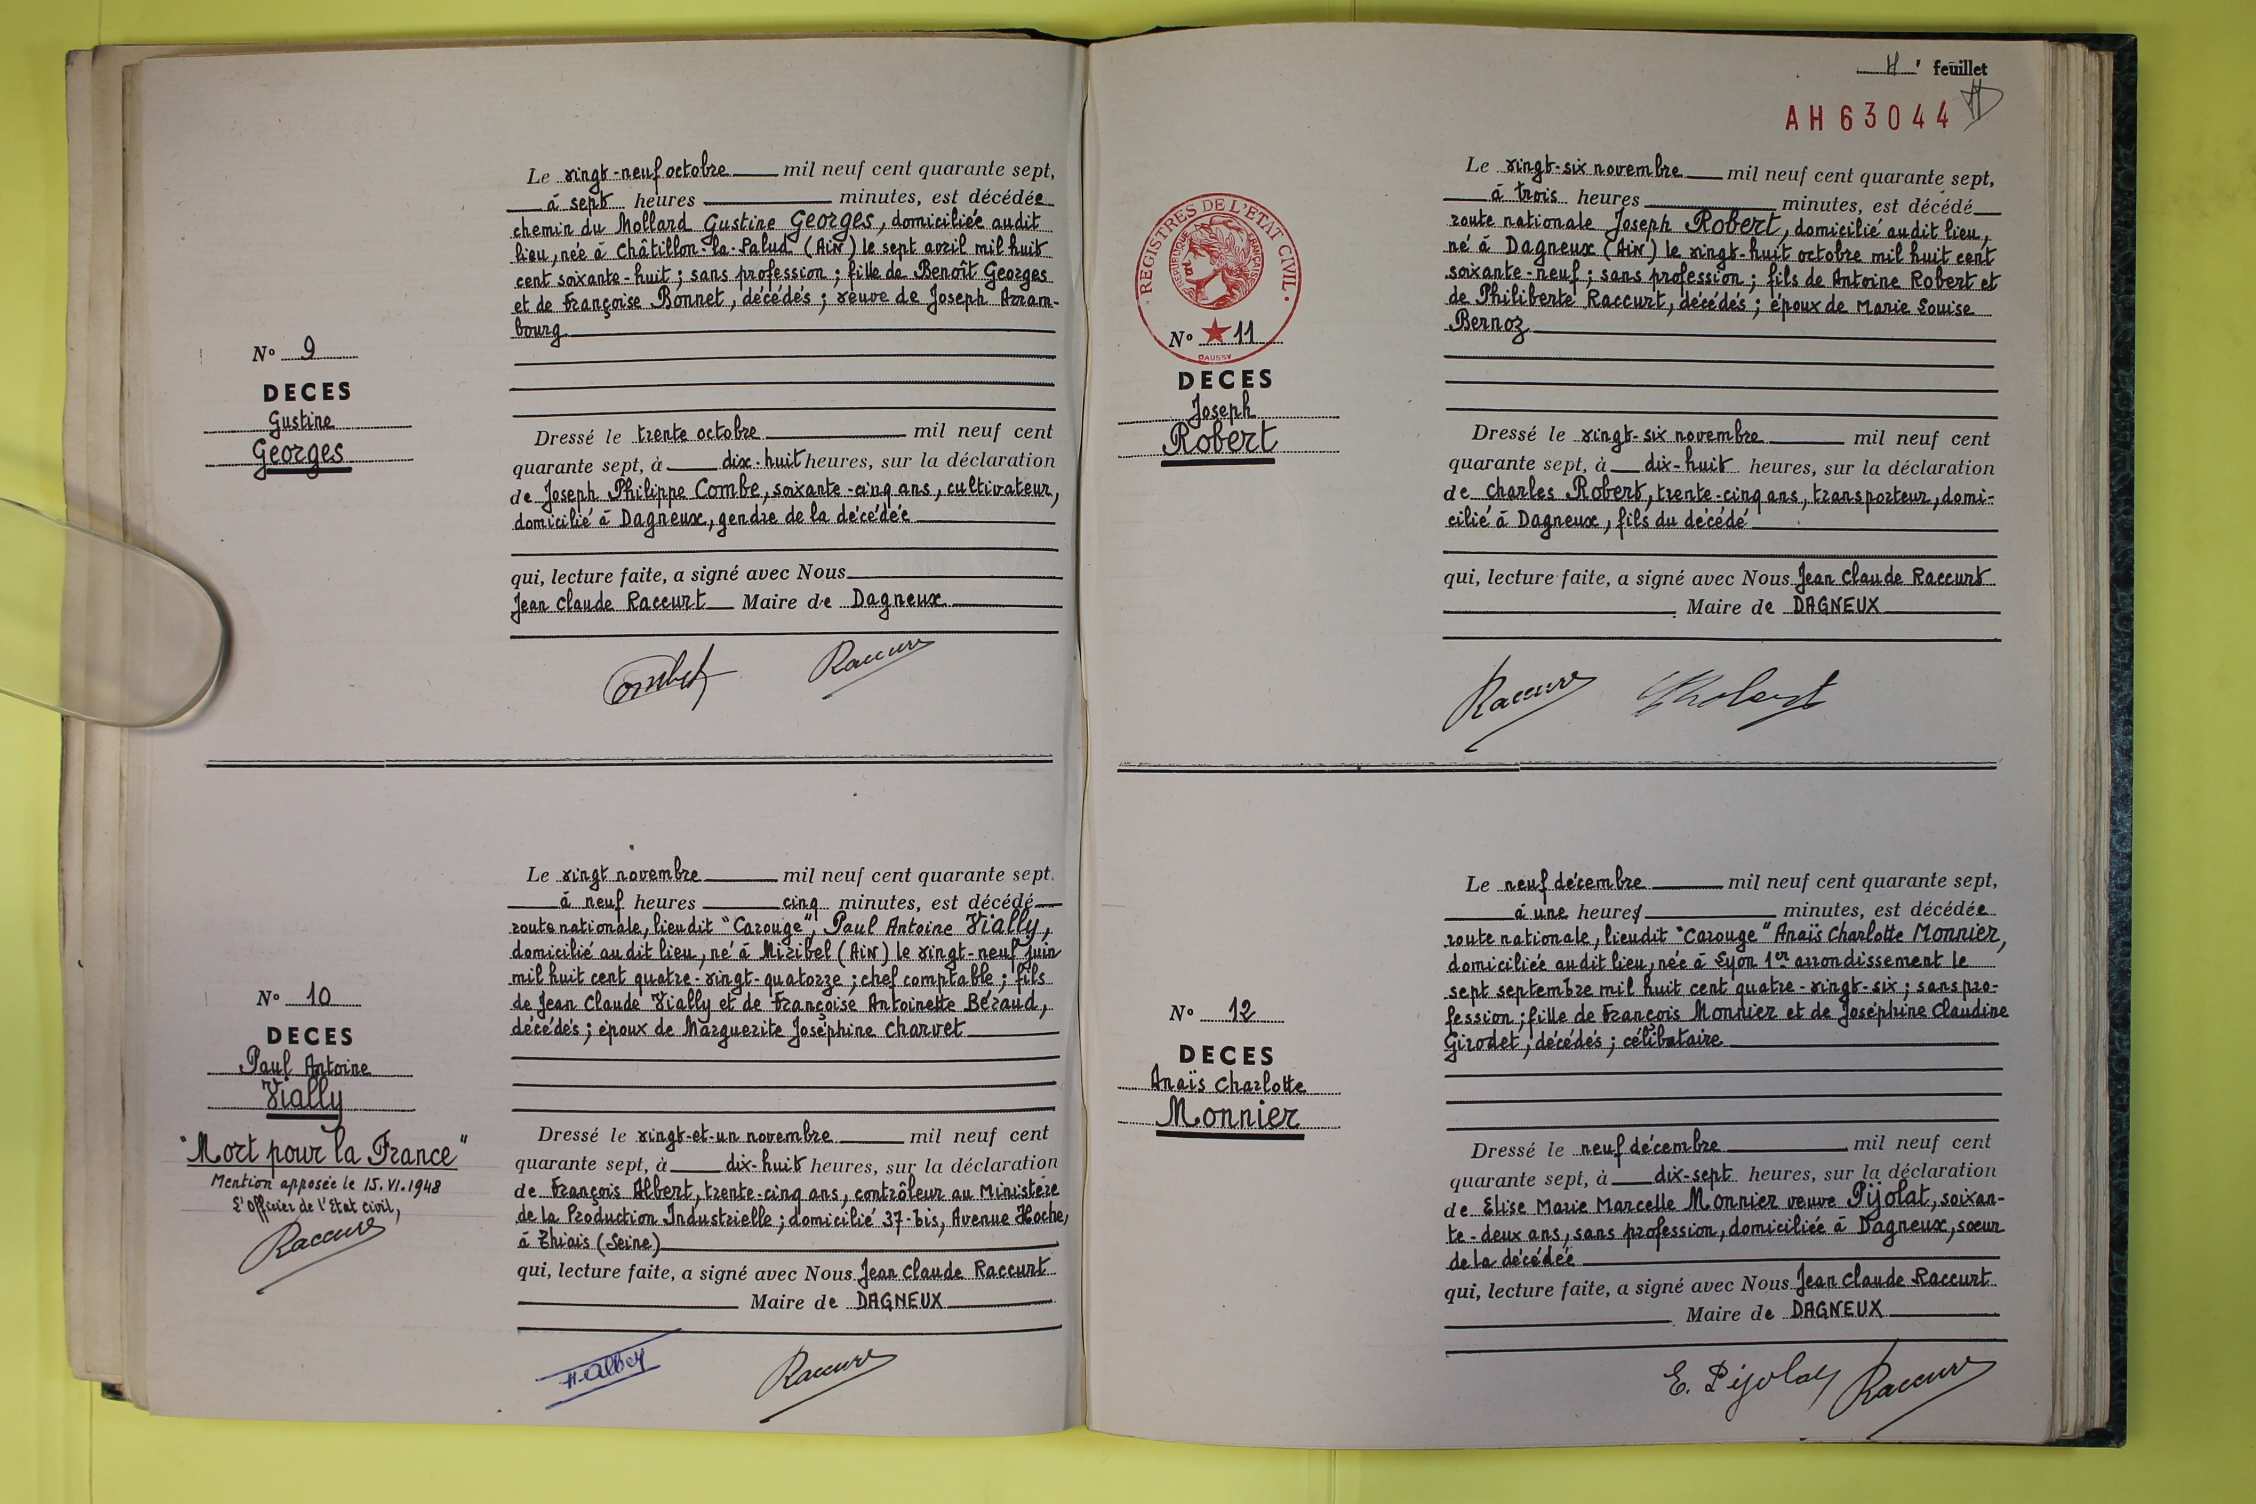 Le vingt-neuf octobre mil neuf cent quarante sept,
à sept heures minutes, est décédée
chemin du Mollard Gustine Georges, domiciliée audit
lieu, née à Châtillon-la-Palud (Ain) le sept avril mil huit
cent soixante-huit ; sans profession ; fille de Benoît Georges
et de Françoise Bonnet, décédés ; veuve de Joseph Arram-
bourg
N° 9
DECES
Gustine
Georges
Dressé le trente octobre mil neuf cent
quarante sept, à dix-huit heures, sur la déclaration
de Joseph Philippe Combe, soixante-cinq ans, cultivateur,
domicilié à Dagneux, gendre de la décédée
qui, lecture faite, a signé avec Nous
Jean Claude Raccurt Maire de Dagneux
Raccurt
Le vingt novembre mil neuf cent quarante sept.
à neuf heures cinq minutes, est décédé
route nationale, lieudit "Carouge", Paul Antoine Vially,
domicilié audit lieu, né à Miribel (Ain) le vingt-neuf juin
mil huit cent quatre-vingt-quatorze ; chef comptable ; fils
de Jean Claude Vially et de Françoise Antoinette Béraud,
décédés ; époux de Marguerite Joséphine Charvet
N° 10
DECES
Paul Antoine
Vially
"Mort pour la France"
Mention apposée le 15.VI.1948
L'Officier de l'Etat civil,
Raccurt
Dressé le vingt-et-un novembre mil neuf cent
quarante sept, à dix-huit heures, sur la déclaration
de François Albert, trente-cinq ans, contrôleur au Ministère
de la Production Industrielle ; domicilié 37-bis, Avenue Hoche,
à Thiais (Seine)
qui, lecture faite, a signé avec Nous Jean Claude Raccurt
Maire de DAGNEUX
F. Albert Raccurt
feuillet
AH 63044
Le vingt-six novembre mil neuf cent quarante sept,
à trois heures minutes, est décédé
route nationale Joseph Robert, domicilié audit lieu,
né à Dagneux (Ain) le vingt-huit octobre mil huit cent
soixante-neuf ; sans profession ; fils de Antoine Robert et
de Philiberte Raccurt, décédés ; époux de Marie Louise
Bernoz
REGISTRES DE L'ETAT CIVIL
REPUBLIQUE FRANÇAISE
N° 11
DAUSSY
DECES
Joseph
Robert
Dressé le vingt-six novembre mil neuf cent
quarante sept, à dix-huit heures, sur la déclaration
de Charles Robert, trente-cinq ans, transporteur, domi-
cilié à Dagneux, fils du décédé
qui, lecture faite, a signé avec Nous Jean Claude Raccurt
Maire de DAGNEUX
Raccurt
Le neuf décembre mil neuf cent quarante sept,
à une heures minutes, est décédée
route nationale, lieudit "Carouge" Anaïs Charlotte Monnier,
domiciliée audit lieu, née à Lyon 1er arrondissement le
sept septembre mil huit cent quatre-vingt-six ; sans pro-
fession ; fille de François Monnier et de Joséphine Claudine
Girodet, décédés ; célibataire
N° 12
DECES
Anaïs Charlotte
Monnier
Dressé le neuf décembre mil neuf cent
quarante sept, à dix-sept heures, sur la déclaration
de Elise Marie Marcelle Monnier veuve Pijolat, soixan-
te-deux ans, sans profession, domiciliée à Dagneux, sœur
de la décédée
qui, lecture faite, a signé avec Nous Jean Claude Raccurt
Maire de DAGNEUX
E. Pijolat Raccurt